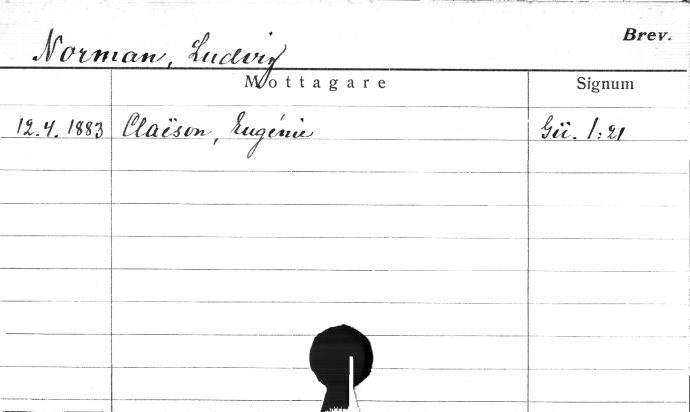 Brev.
Norman, Ludvig
Mottagare Signum
12.4. 1883 Claëson, Eugénie Gü. 1:21